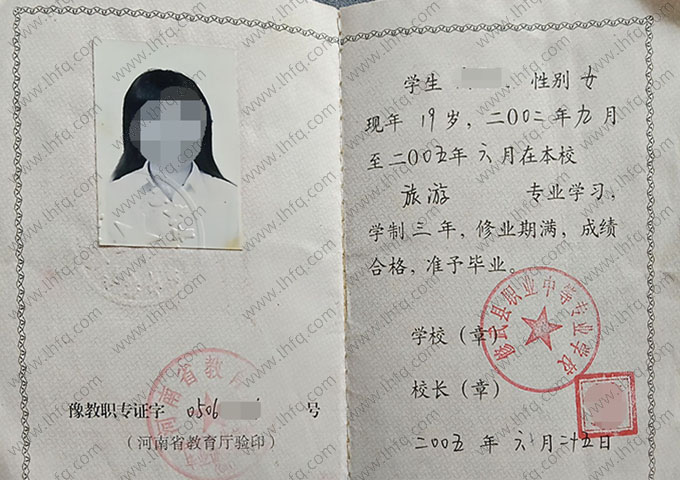 豫教职专证字 0506 号
(河南省教育厅验印)
河南省教育
学生 性别 女
现年 19 岁，二00二年九月
至二00五年六月在本校
旅游 专业学习，
学制三年，修业期满，成绩
合格，准予毕业。
修武县职业中等专业学校
学校（章）
校长（章）
二00五 年 六 月 二十五日
www.lhfq.com